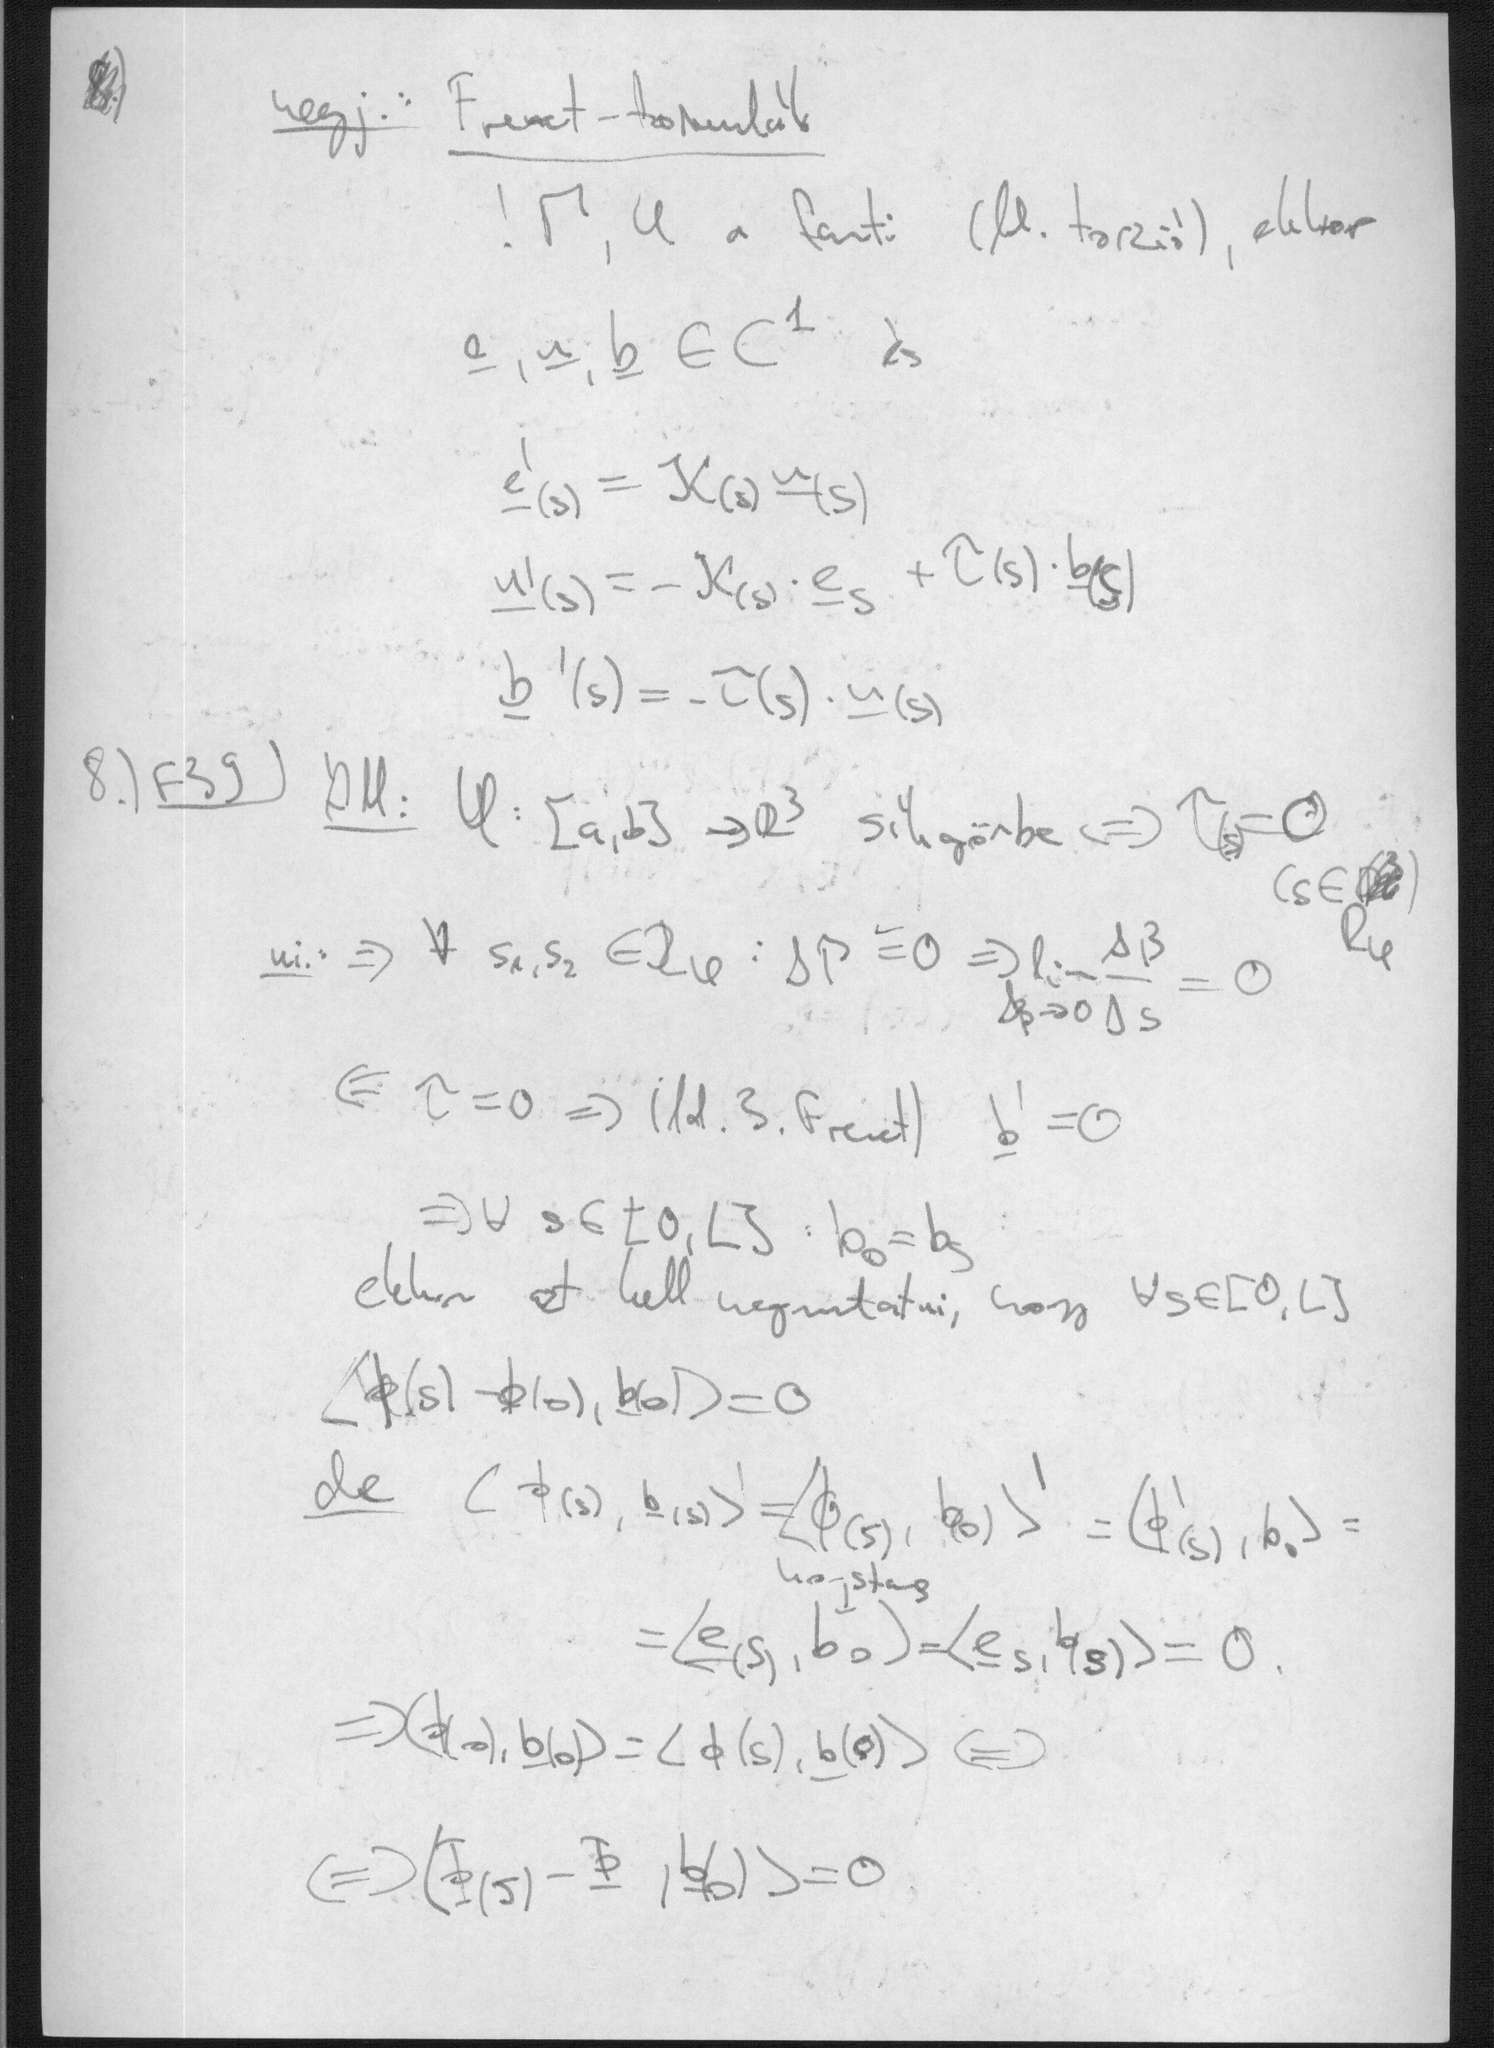 megj.: Frenet-formulák
! Γ, φ a fenti (ld. torzió), ekkor
e, n, b ∈ C¹ és
e'(s) = ϰ(s) n(s)
n'(s) = -ϰ(s)·e_s + τ(s)·b(s)
b'(s) = -τ(s)·n(s)
8.) F39) Áll: φ: [a,b] → R³ síkgörbe ⇔ τ(s)=0
(s∈
R_φ
⇒ ∀ s₁, s₂ ∈ R_φ : Δβ = 0 ⇒ lim Δβ/Δs = 0
⇐ τ = 0 ⇒ (ld. 3. Frenet) b' = 0
⇒ ∀ s ∈ [0, L] : b₀ = b_s
ekkor azt kell megmutatni, hogy ∀s∈[0, L]
⟨ϕ(s) - ϕ(0), b(0)⟩ = 0
de ⟨ϕ(s), b(s)⟩' = ⟨ϕ(s), b(0)⟩' = ⟨ϕ'(s), b₀⟩ =
konstans
= ⟨e(s), b₀⟩ = ⟨e_s, b(s)⟩ = 0.
⇒ ⟨ϕ(0), b(0)⟩ = ⟨ϕ(s), b(0)⟩ ⇔
⇔ ⟨ϕ(s) - ϕ, b(0)⟩ = 0